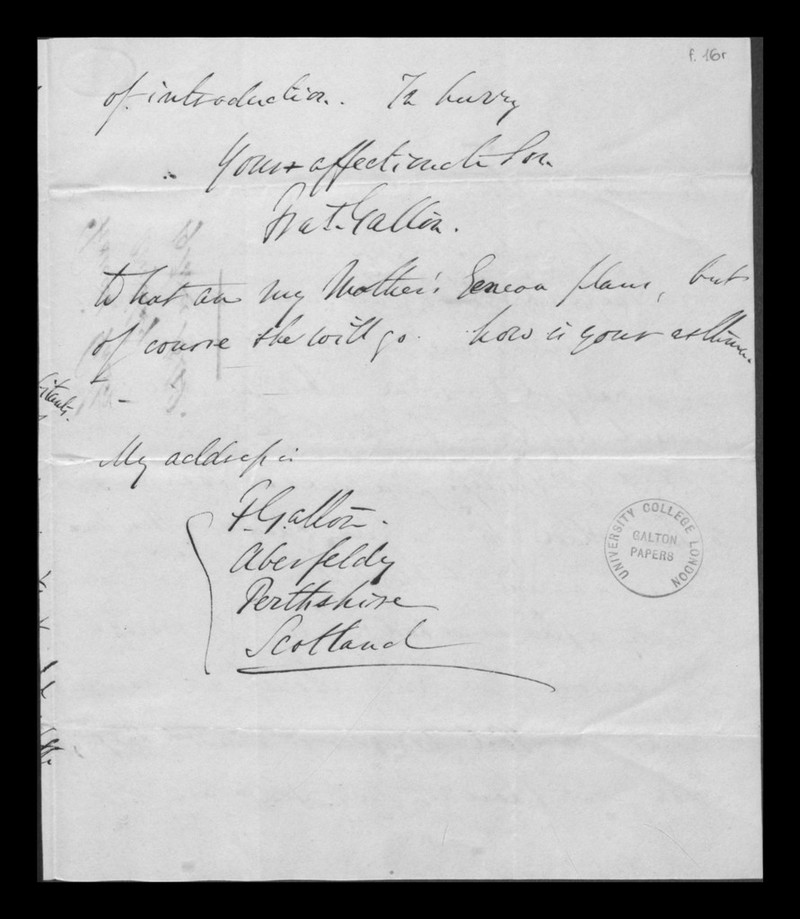 f. 16r
of introduction. In hurry
Your affectionate Son
Fras. Galton.
What are my Mother's plans, but
of course she will go. how is your asthma
My address is
F. Galton.
Aberfeldy
Perthshire
Scotland
UNIVERSITY COLLEGE LONDON
GALTON
PAPERS